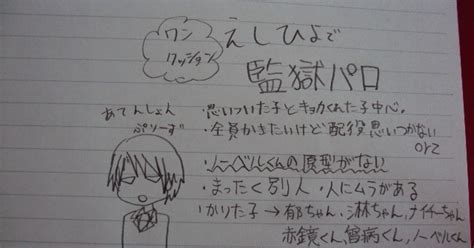 ワン
クッション
えしひよで
監獄パロ
あてんしょん
ぷりーず
・思いついた子とキョカくれた子中心。
・全員かきたいけど配役思いつかない
orz
・ノーベルくんの原型がない
・まったく別人・人にムラがある
かりた子→郁ちゃん、沐林ちゃん、ナイチーちゃん
赤鏡くん、胃病くん、ノーベルくん